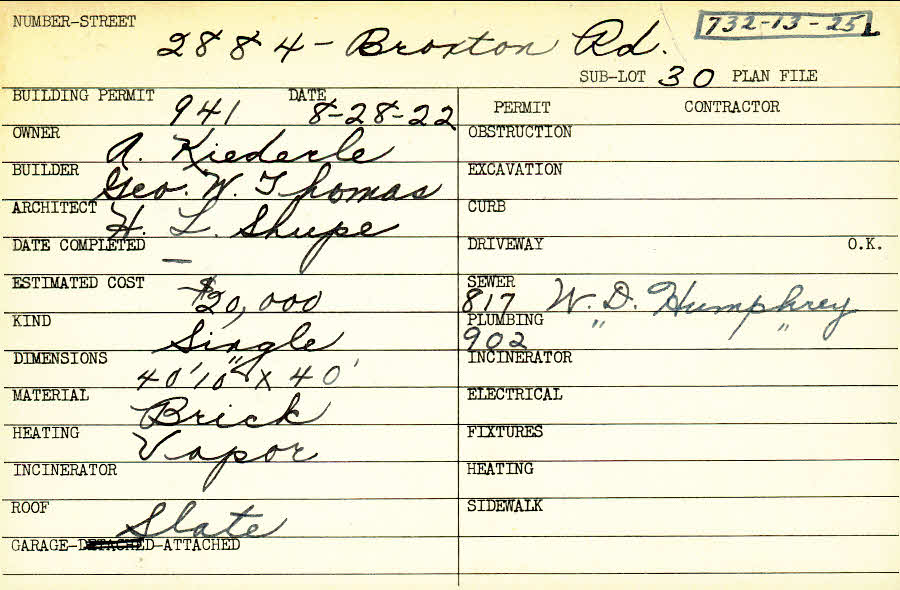 NUMBER-STREET 2884 - Broxton Rd. 732-13-25
SUB-LOT 30 PLAN FILE
BUILDING PERMIT 941 DATE 8-28-22 PERMIT CONTRACTOR
OWNER A. Kiederle OBSTRUCTION
BUILDER Geo. W. Thomas EXCAVATION
ARCHITECT H. L. Shupe CURB
DATE COMPLETED — DRIVEWAY O.K.
ESTIMATED COST $20,000 SEWER 817 W. D. Humphrey
KIND Single PLUMBING 902 " "
DIMENSIONS 40'10" X 40' INCINERATOR
MATERIAL Brick ELECTRICAL
HEATING Vapor FIXTURES
INCINERATOR HEATING
ROOF Slate SIDEWALK
GARAGE-DETACHED-ATTACHED